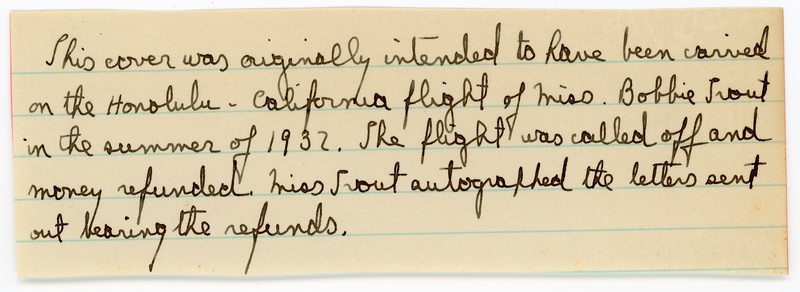 This cover was originally intended to have been carried
on the Honolulu - California flight of Miss. Bobbie Trout
in the summer of 1932. The flight was called off and
money refunded. Miss Trout autographed the letters sent
out bearing the refunds.